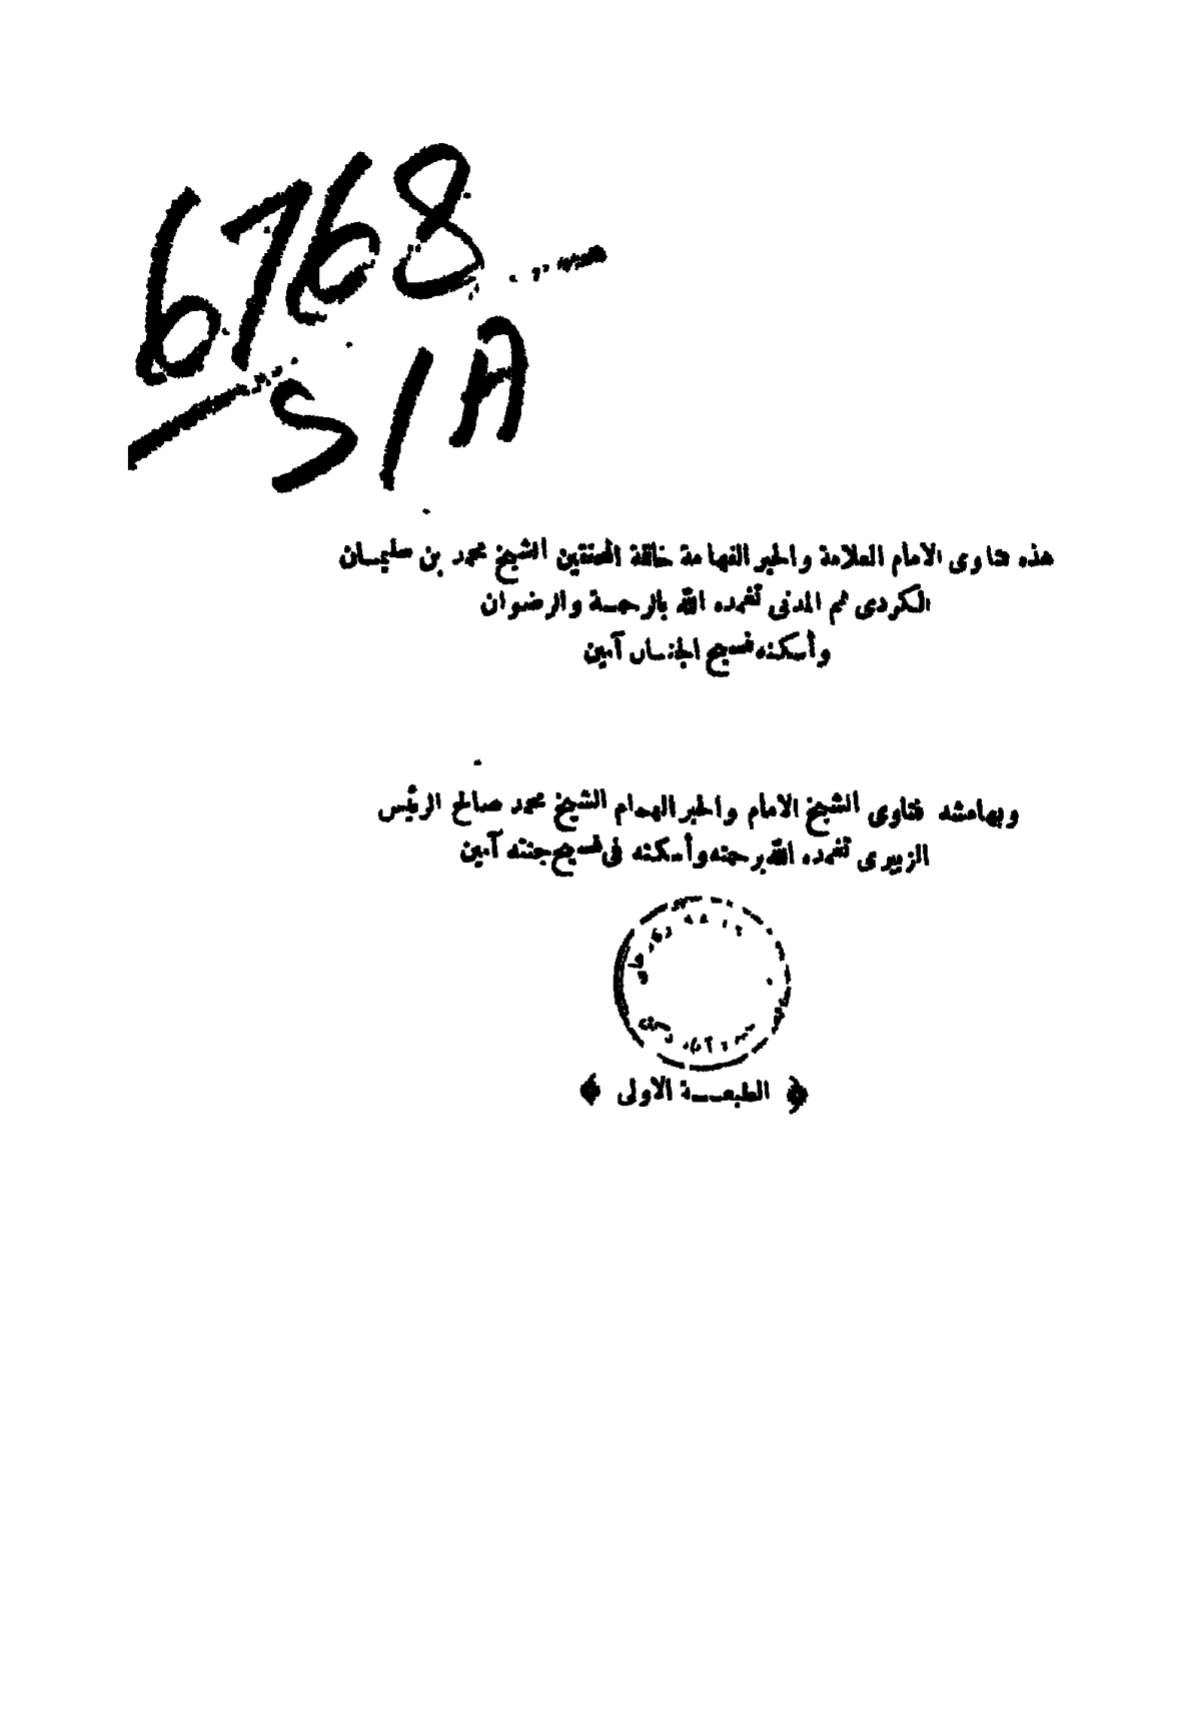 6768
S/A
هذه فتاوى الامام العلامة والحبر الفهامة خاتمة المحققين الشيخ محمد بن سليمان
الكردى ثم المدنى تغمده الله بالرحمة والرضوان
وأسكنه فسيح الجنان آمين
وبهامشه فتاوى الشيخ الامام والحبر الهمام الشيخ محمد صالح الرئيس
الزبيرى تغمده الله برحمته وأسكنه فى فسيح جنته آمين
﴿ الطبعة الاولى ﴾